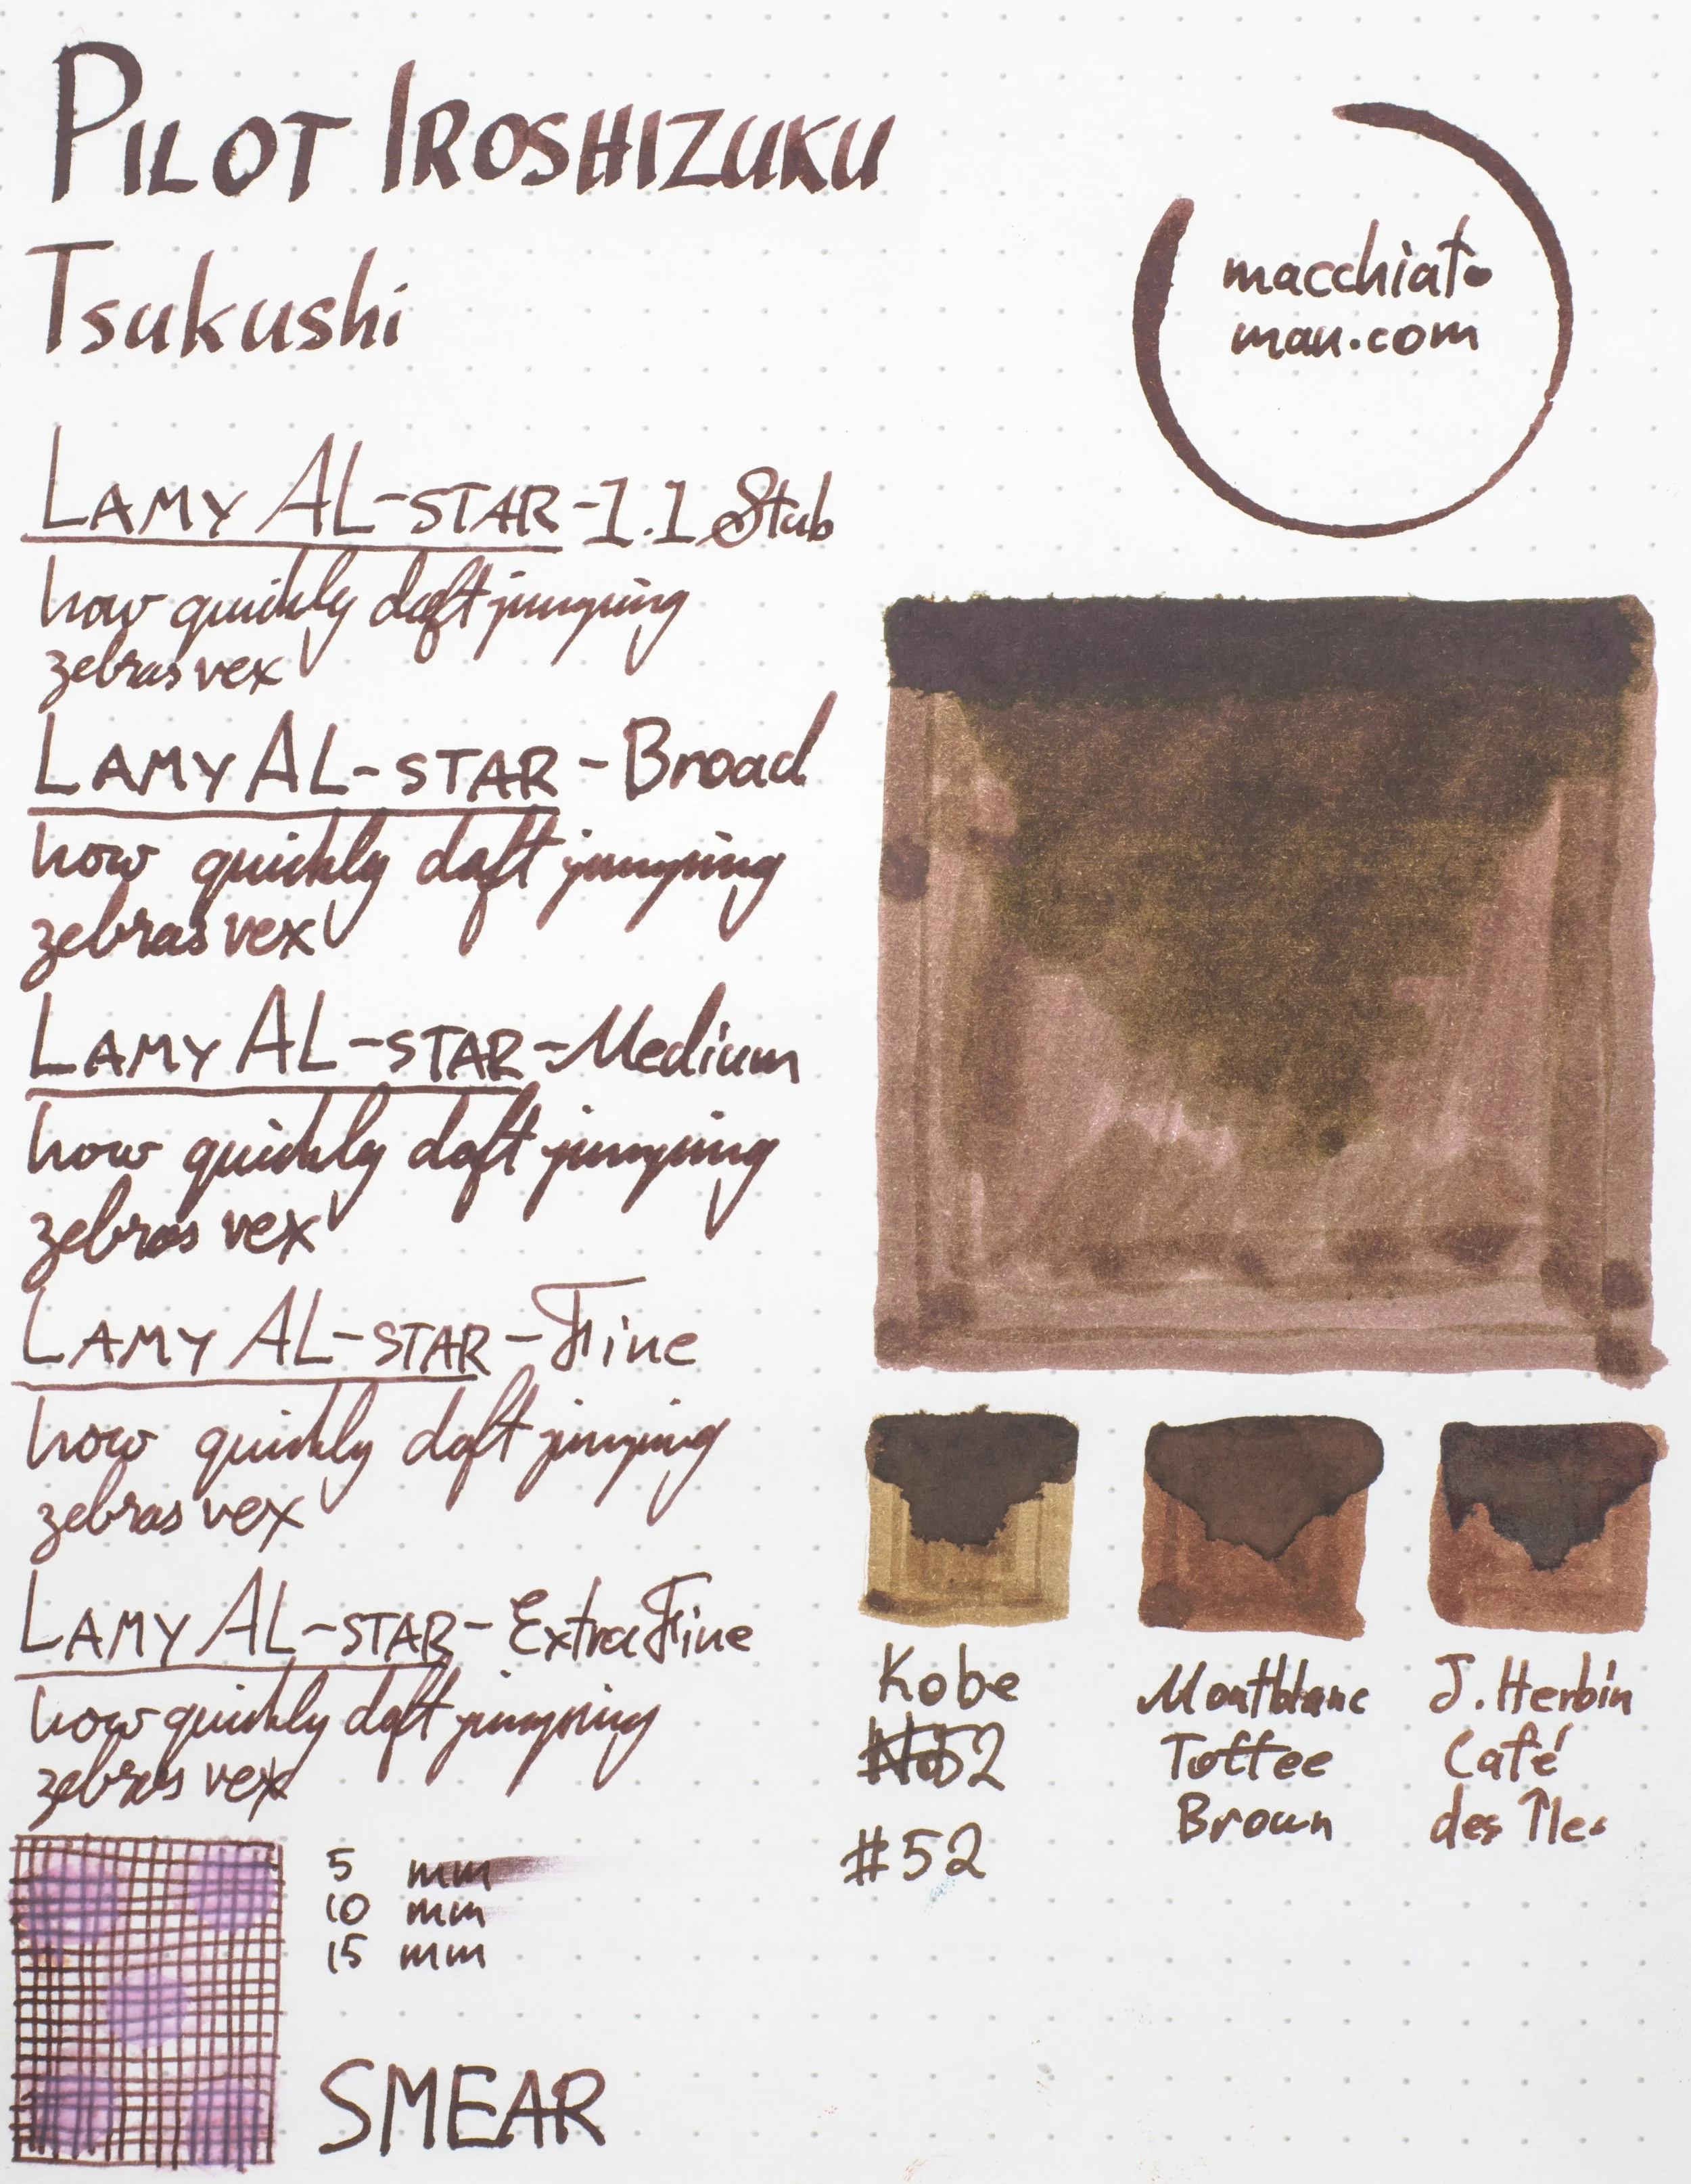 PILOT IROSHIZUKU
Tsukushi
macchiato
man.com
LAMY AL-STAR-1.1 Stub
how quickly daft jumping
zebras vex
LAMY AL-STAR-Broad
how quickly daft jumping
zebras vex
LAMY AL-STAR-Medium
how quickly daft jumping
zebras vex
LAMY AL-STAR-Fine
how quickly daft jumping
zebras vex
LAMY AL-STAR-Extra Fine
how quickly daft jumping
zebras vex
Kobe
#52
#52
Montblanc
Toffee
Brown
J. Herbin
Café
des Îles
5 mm
10 mm
15 mm
SMEAR